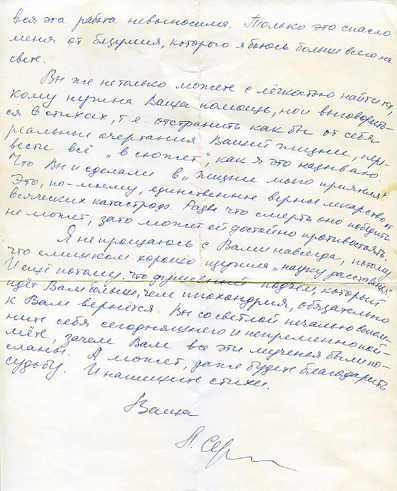 вся эта работа невыносима. Только это спасло
меня от безумия, которого я боюсь больше всего на
свете.
Вы же не только можете с лёгкостью найти тех,
кому нужна Ваша помощь, но и выговорить-
ся в стихах, т.е. отстранить как бы от себя
реальные очертания Вашей жизни, пере-
вести всё „в сюжет", как я это называю.
Что Вы и сделали в „Жизни моего приятеля".
Это, по-моему, единственное верное лекарство от
всяческих катастроф. Разве что смерть оно победить
не может, зато может ей достойно противостоять.
Я не прощаюсь с Вами навсегда, потому
что слишком хорошо изучила „науку расставанья".
И ещё потому, что душевный подъём, который
идёт Вам больше, чем ипохондрия, обязательно
к Вам вернётся. Вы со светлой печалью вспом-
ните себя сегодняшнего и непременно пой-
мёте, зачем Вам все эти мученья были по-
сланы. А может, даже будете благодарить
судьбу. И напишите стихи.
Ваша